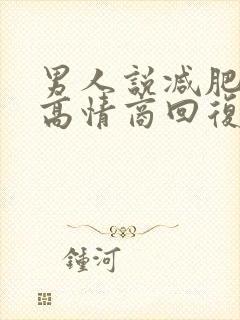 男人說減肥
高情商回復
鍾河